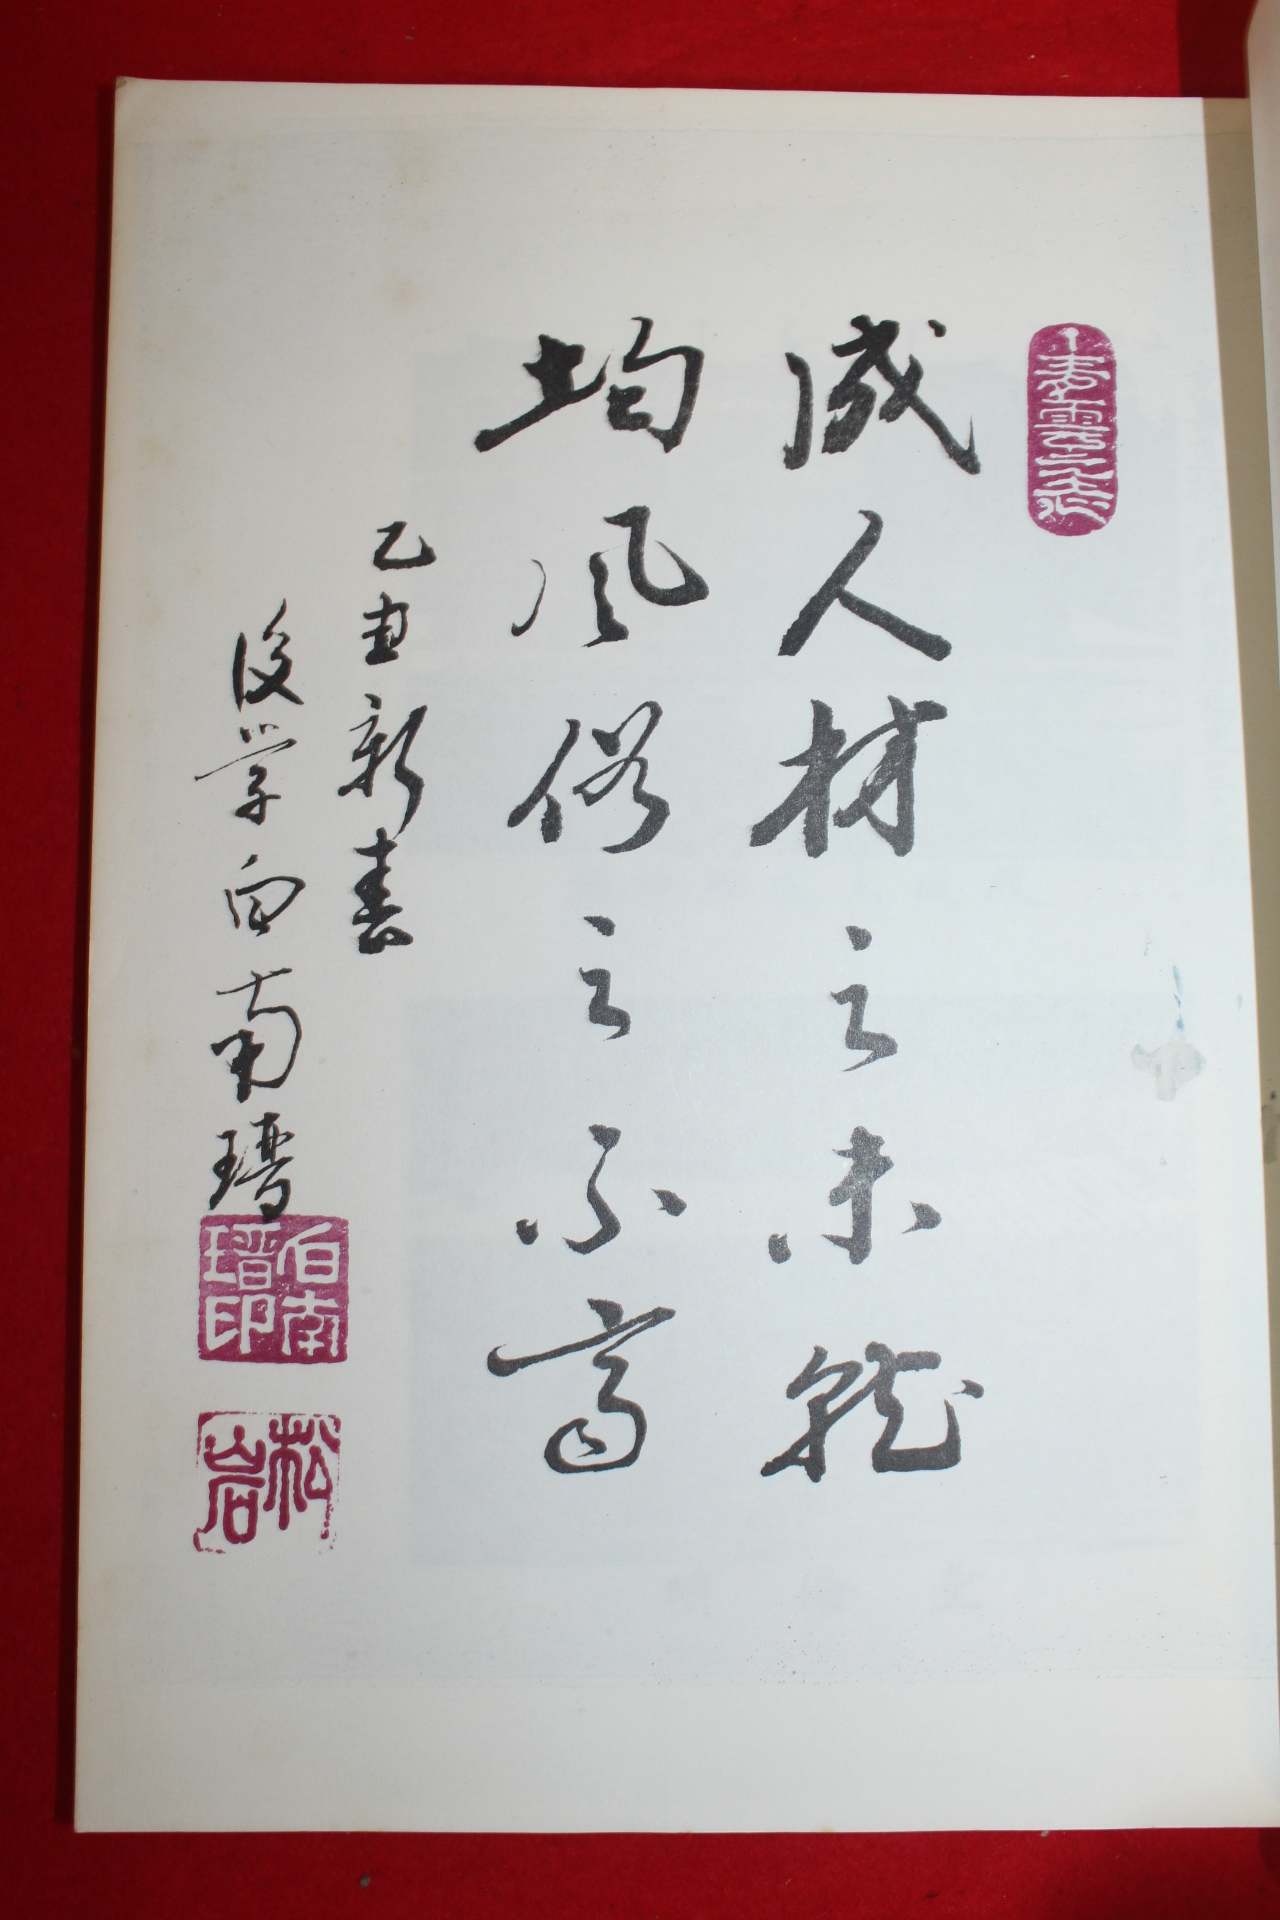 青雲之志
成人材之未就
均風俗之不齊
乙丑新春
後學白南瑨
白南
瑨印
松
岩